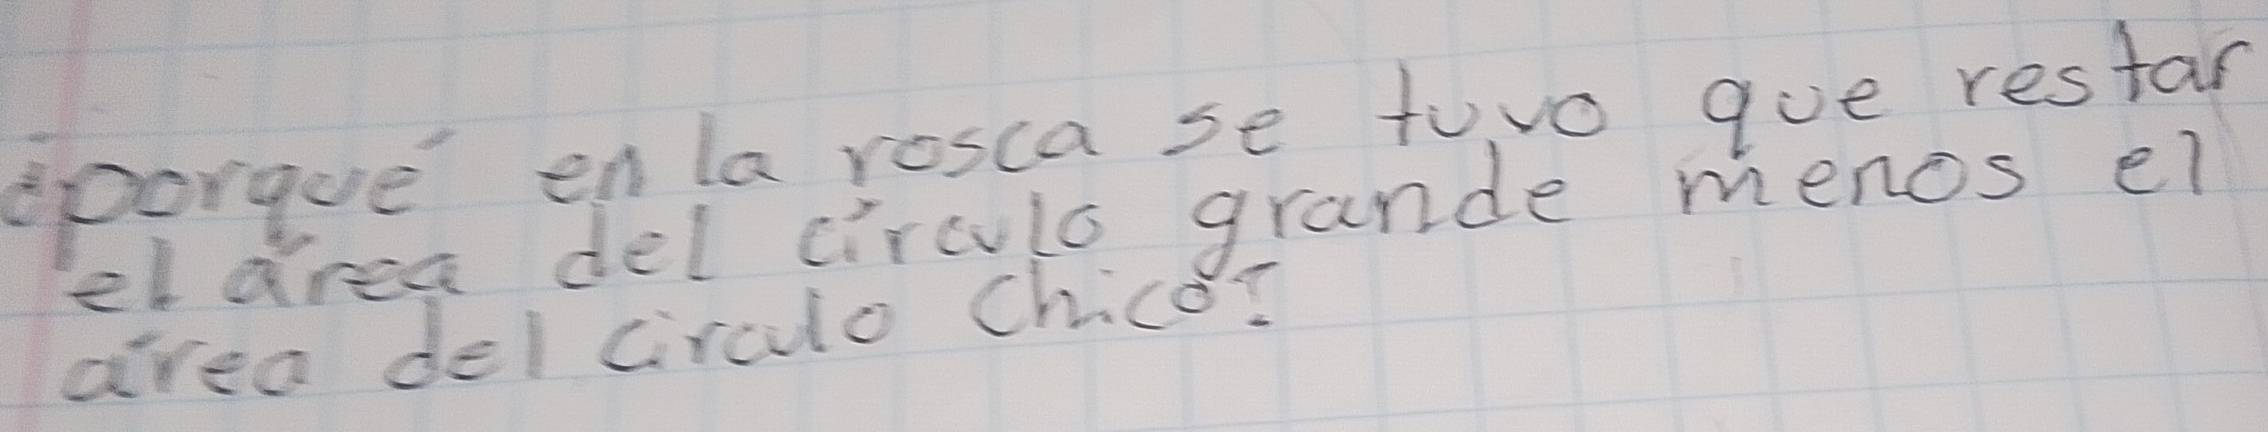 ¿porqué en la rosca se tuvo que restar
el área del círculo grande menos el
área del circulo chico?